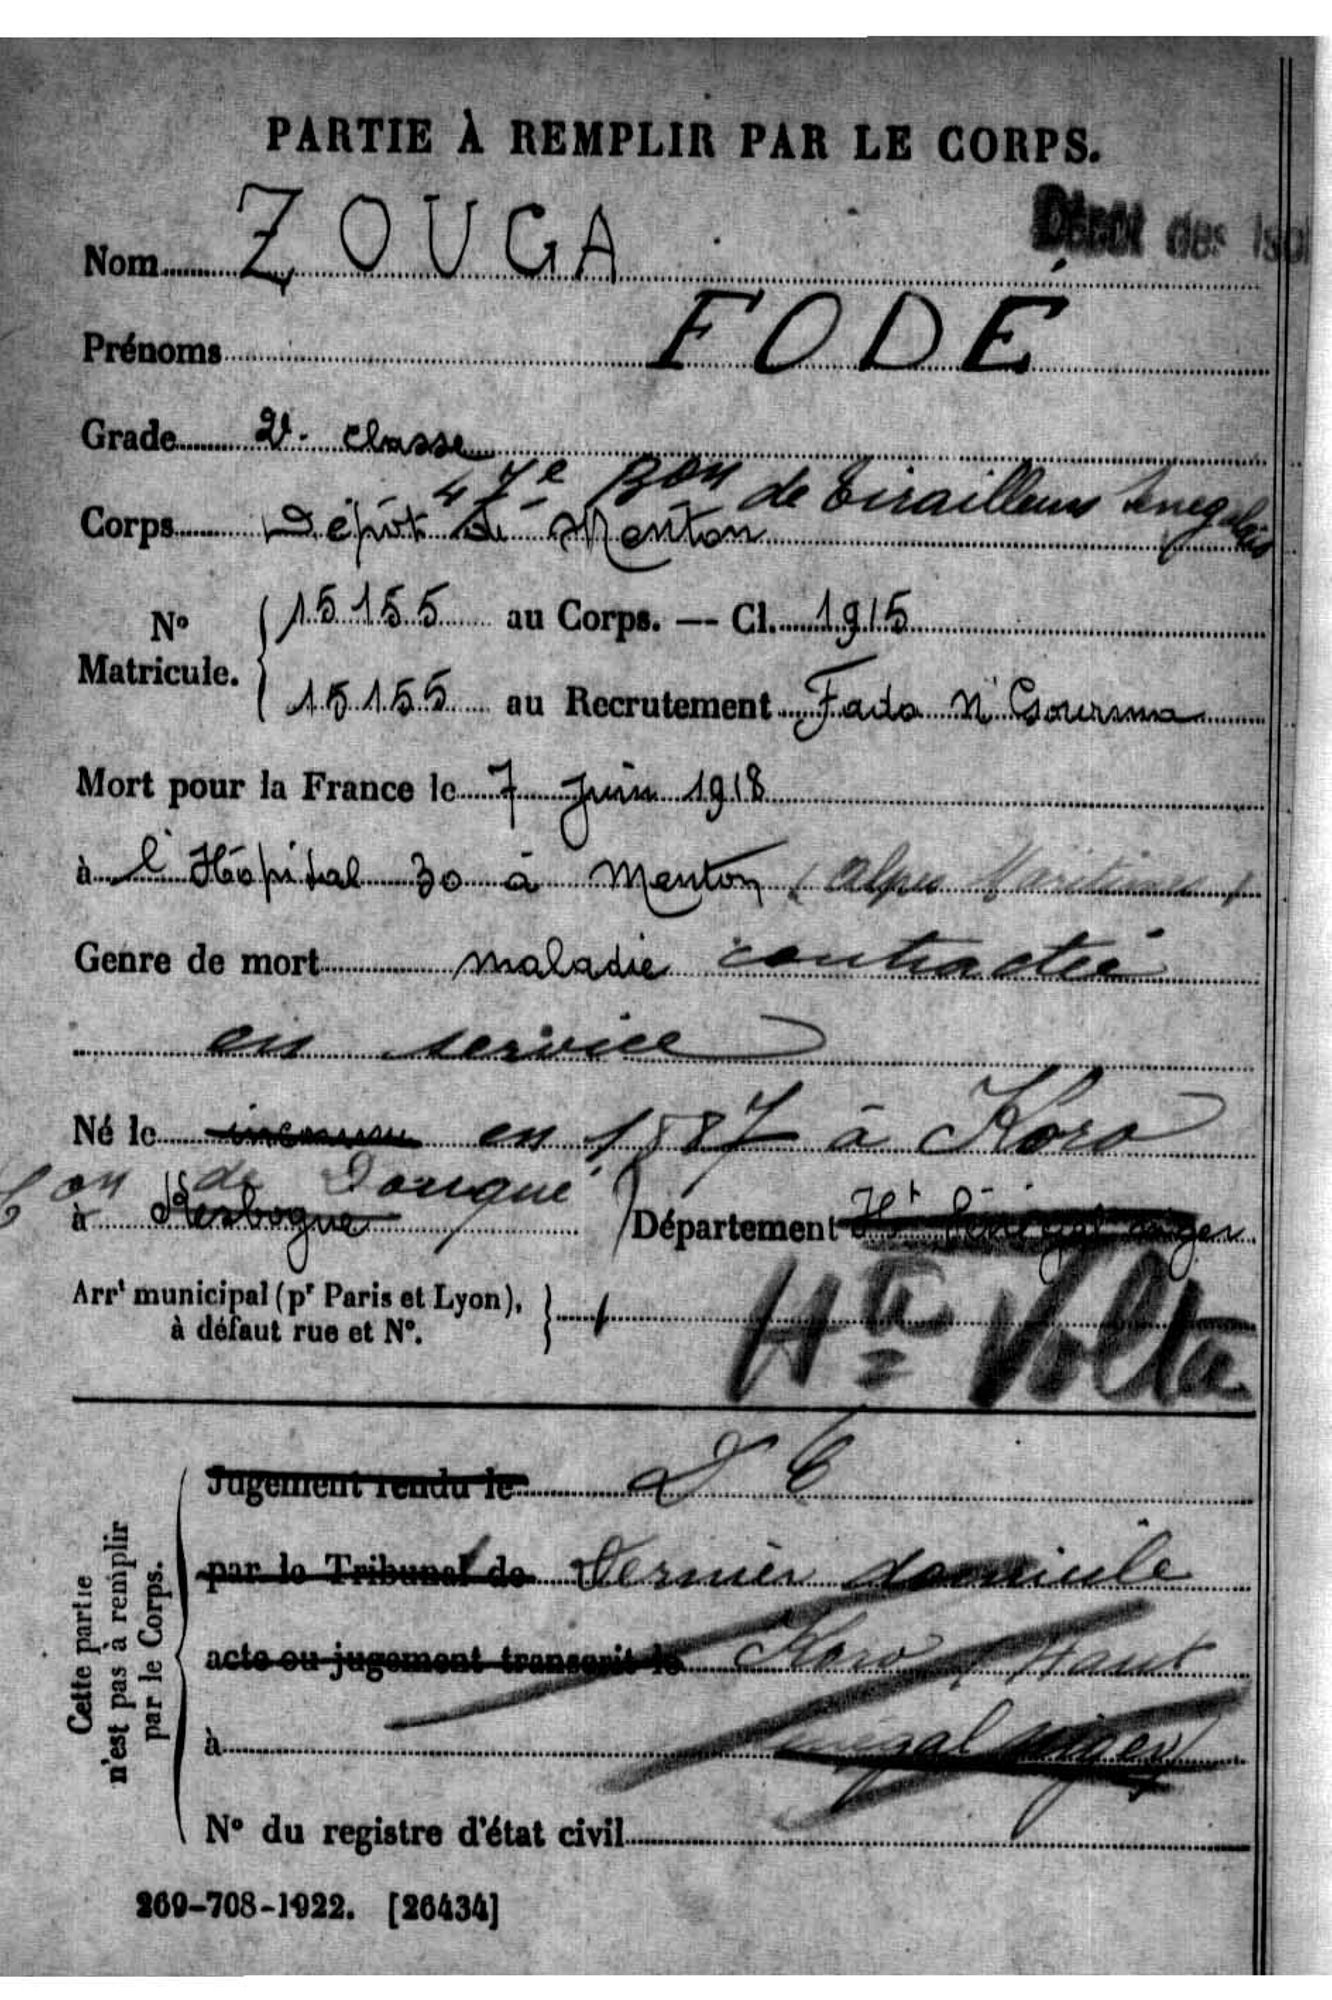 PARTIE À REMPLIR PAR LE CORPS.
Dépôt des Isol
Nom ZOUGA
Prénoms FODÉ
Grade 2e classe
47e Bon de Tirailleurs Senegalais
Corps Dépôt de Menton
No Matricule. 15155 au Corps. — Cl. 1915
15155 au Recrutement Fada N'Gourma
Mort pour la France le 7 Juin 1918
à l'Hôpital 30 à Menton (Alpes Maritimes)
Genre de mort maladie contractée
en service
Né le inconnu en 1887 à Koro
Con de
à Département Ht Sénégal Niger
Arrt municipal (pr Paris et Lyon),
à défaut rue et No.
Hte Volta
Cette partie
n'est pas à remplir
par le Corps.
Jugement rendu le
par le Tribunal de Dernier domicile
acte ou jugement transcrit le Koro Haut
à Sénégal Niger
No du registre d'état civil
269-708-1922. [26434]